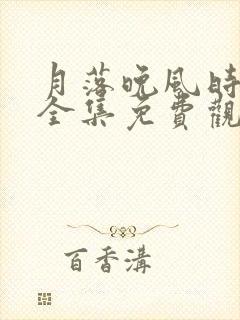 月落晚風時
全集免費觀
百香溝